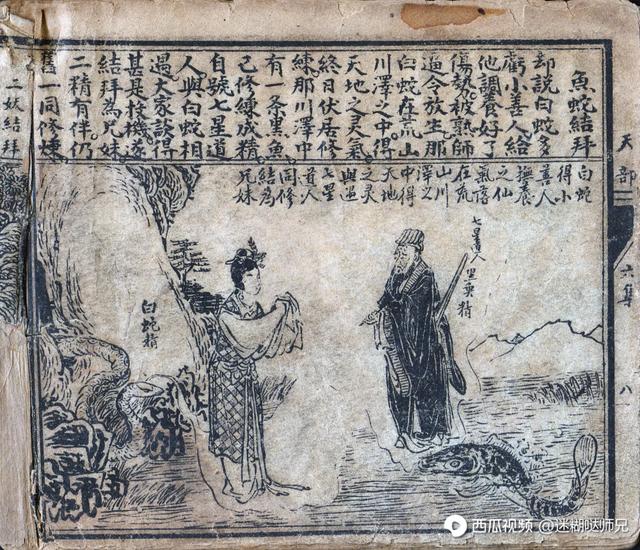 天部 六集 八
魚蛇結拜
却說白蛇多
虧小善人給
他調養好了
傷勢被熟師
逼令放生那
白蛇在荒山
川澤之中得
天地之灵氣
終日伏居修
練那川澤中
有一条黑魚
已修練成精
自號七星道
人與白蛇相
遇大家談得
甚是投機遂
結拜為兄妹
二精有伴仍
舊一同修煉
白蛇
得小
善人
撫養
之仙
氣落
在荒
山川
澤之
中得
天地
之灵
與過
七星
道人
同修
結為
兄妹
七星道人
黑魚精
白蛇精
二妖結拜
西瓜视频 @迷糊哒师兄